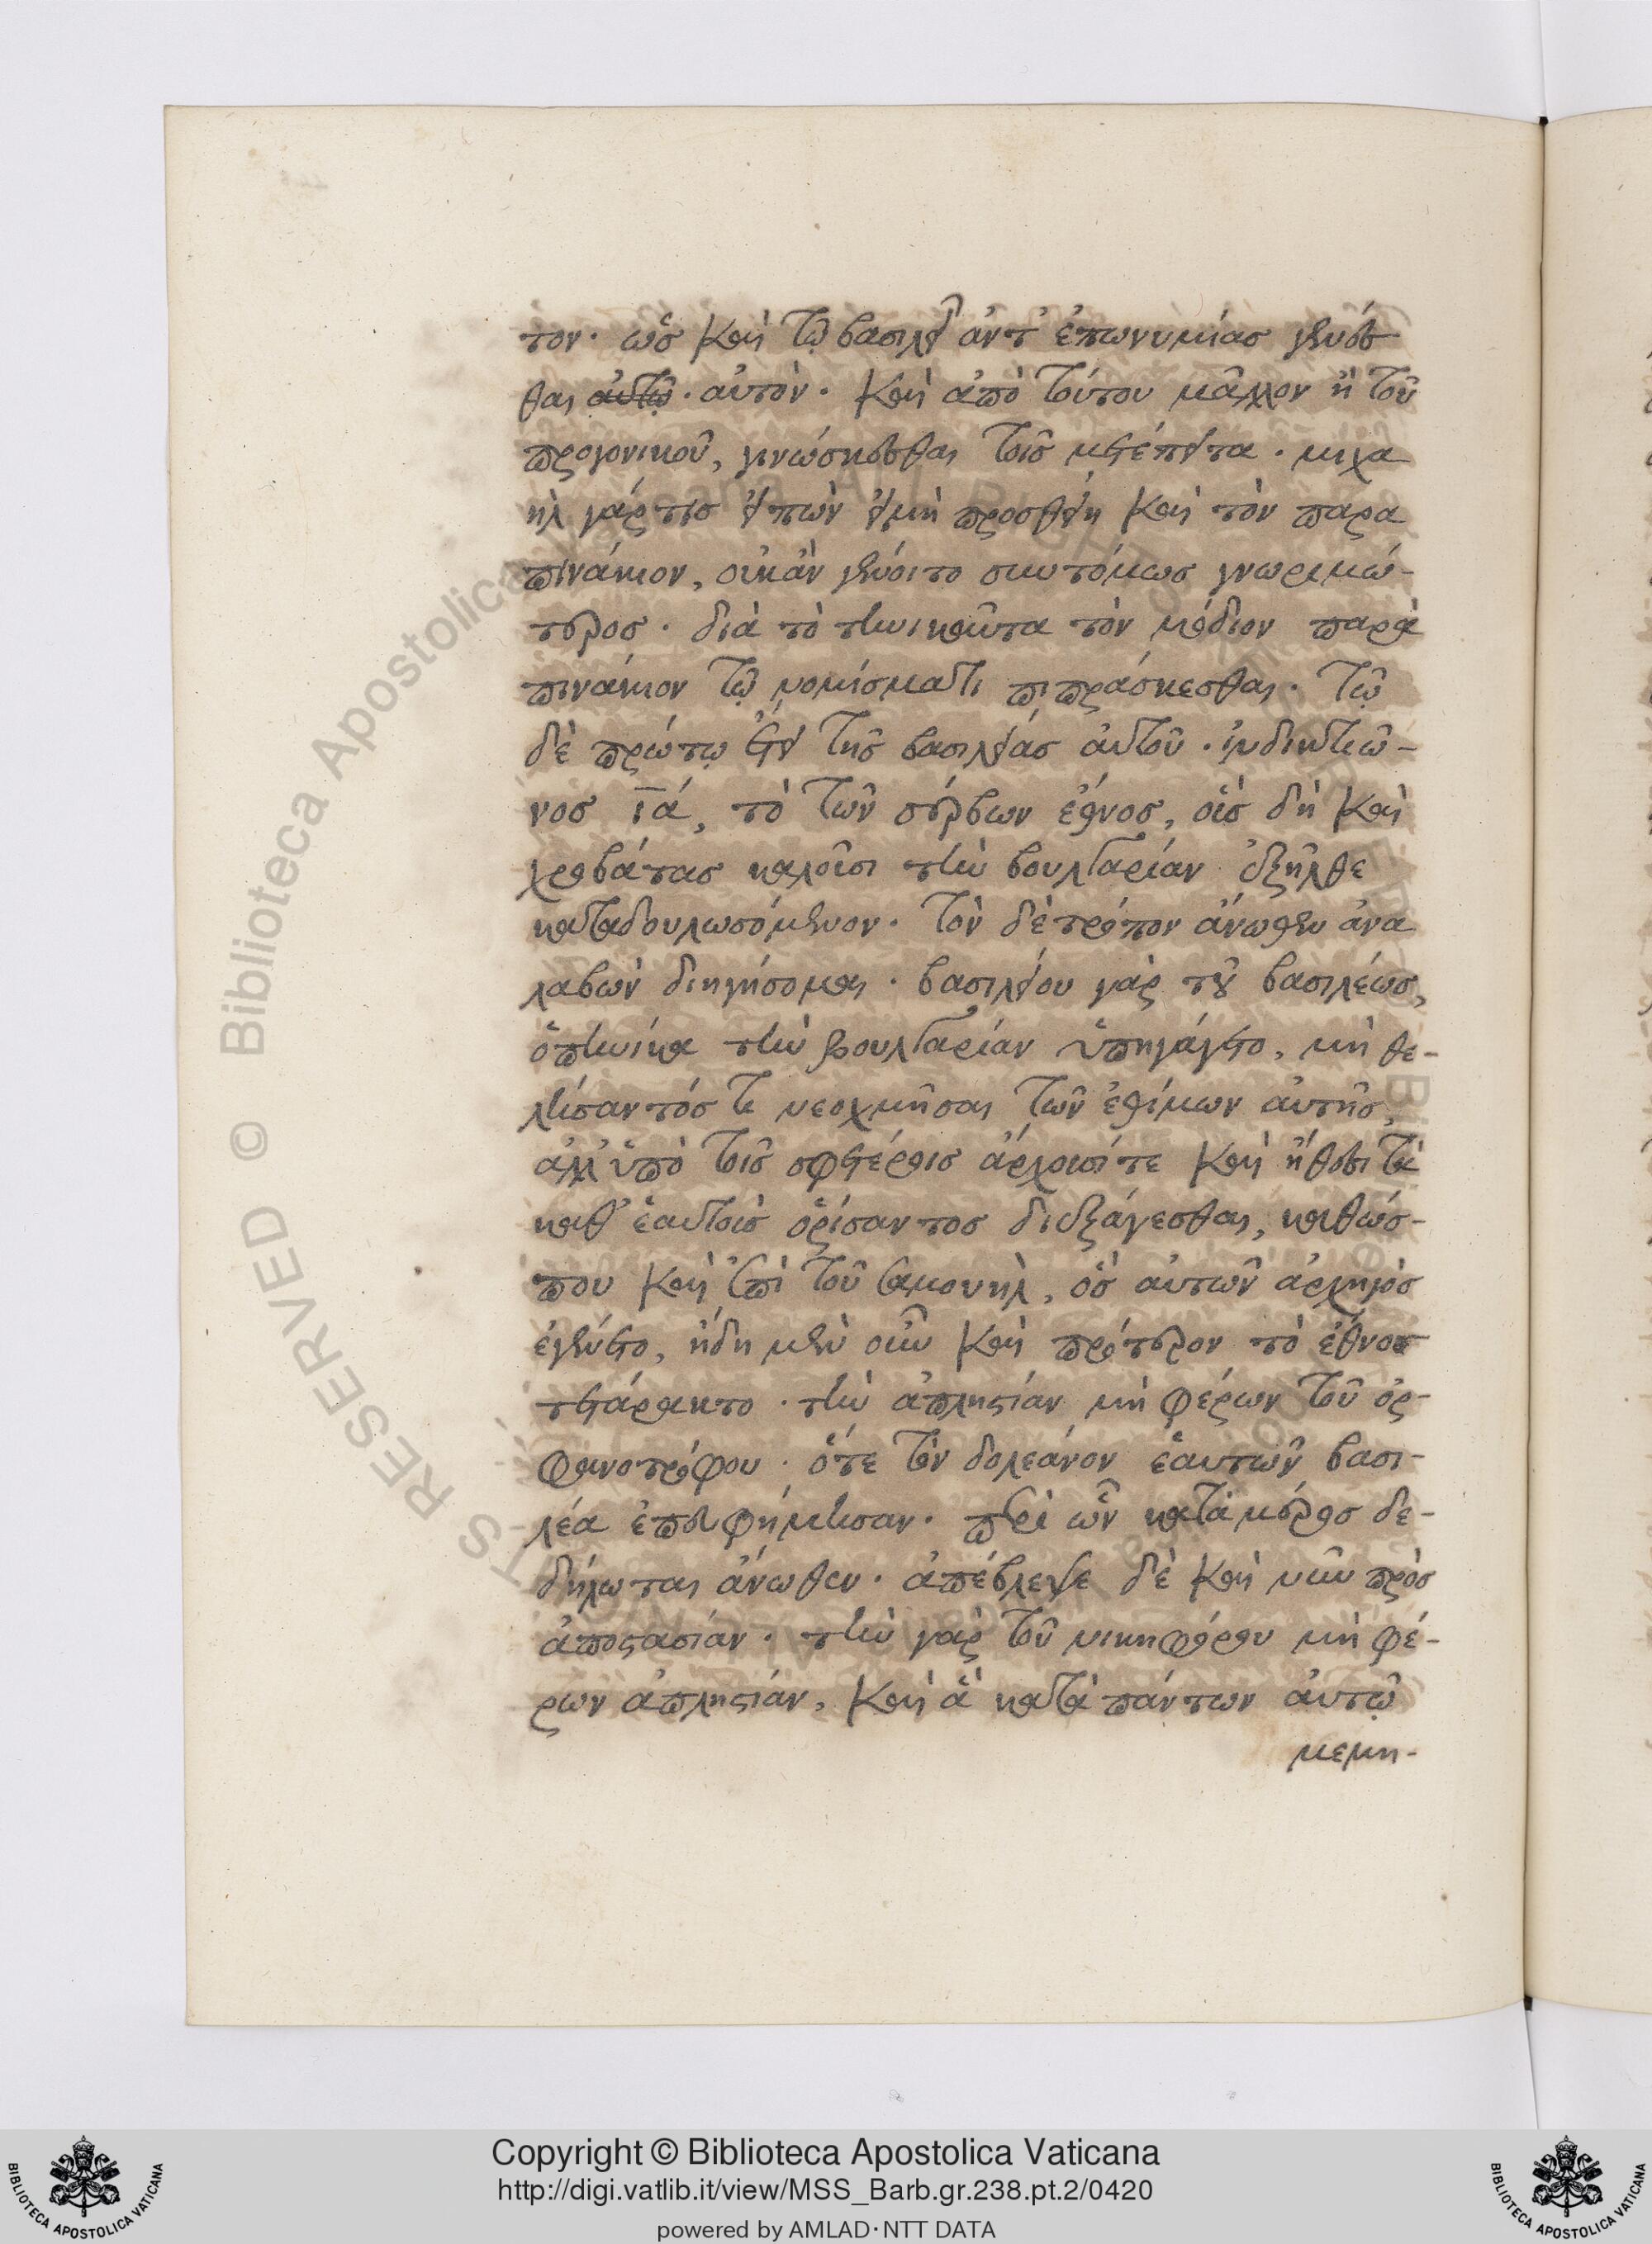 τον· ὡς καὶ τῷ βασιλεῖ ἀντ' ἐπωνυμίας γενέσ
θαι αὐτῷ· αὐτὸν· καὶ ἀπὸ τούτου μᾶλλον ἢ τοῦ
προγονικοῦ, γινώσκεσθαι τοῖς μετέπειτα· μιχα
ὴλ γάρ τις εἰπὼν εἰ μὴ προσθείη καὶ τὸν παρα
πινάκιον, οὐκ ἂν γένοιτο συντόμως γνωριμώ-
τερος· διὰ τὸ τηνικαῦτα τὸν μόδιον παρὰ
πινάκιον τῷ νομίσματι πιπράσκεσθαι· τῷ
δὲ πρώτῳ ἔτει τῆς βασιλείας αὐτοῦ· ἰνδικτιῶ-
νος ϊά, τὸ τῶν σέρβων ἔθνος, οἷς δὴ καὶ
χροβάτας καλοῦσι τὴν βουλγαρίαν ἐξῆλθε
καταδουλωσόμενον· τὸν δὲ τρόπον ἄνωθεν ἀνα
λαβὼν διηγήσομαι· βασιλείου γὰρ τοῦ βασιλέως,
ὁπηνίκα τὴν βουλγαρίαν ὑπηγάγετο, μὴ θε-
λήσαντός τι νεοχμῆσαι τῶν ἐθίμων αὐτῆς,
ἀλλ' ὑπὸ τοῖς σφετέροις ἄρχουσί τε καὶ ἤθεσι τὰ
καθ' ἑαυτοὺς ὁρίσαντος διεξάγεσθαι, καθώσ-
που καὶ ἐπὶ τοῦ σαμουὴλ, ὃς αὐτῶν ἀρχηγὸς
ἐγένετο, ἤδη μὲν οὖν καὶ πρότερον τὸ ἔθνος
τετάρακτο· τὴν ἀπληστίαν μὴ φέρων τοῦ ὀρ-
φανοτρόφου· ὅτε τὸν δολεάνον ἑαυτῶν βασι-
λέα ἐπευφήμησαν· περὶ ὧν κατὰ μέρος δε-
δήλωται ἄνωθεν· ἀπέβλεψε δὲ καὶ νῦν πρὸς
ἀποστασίαν· τὴν γὰρ τοῦ νικηφόρου μὴ φέ-
ρων ἀπληστίαν, καὶ ἃ κατὰ πάντων αὐτῷ
μεμη-
Copyright © Biblioteca Apostolica Vaticana
http://digi.vatlib.it/view/MSS_Barb.gr.238.pt.2/0420
powered by AMLAD·NTT DATA